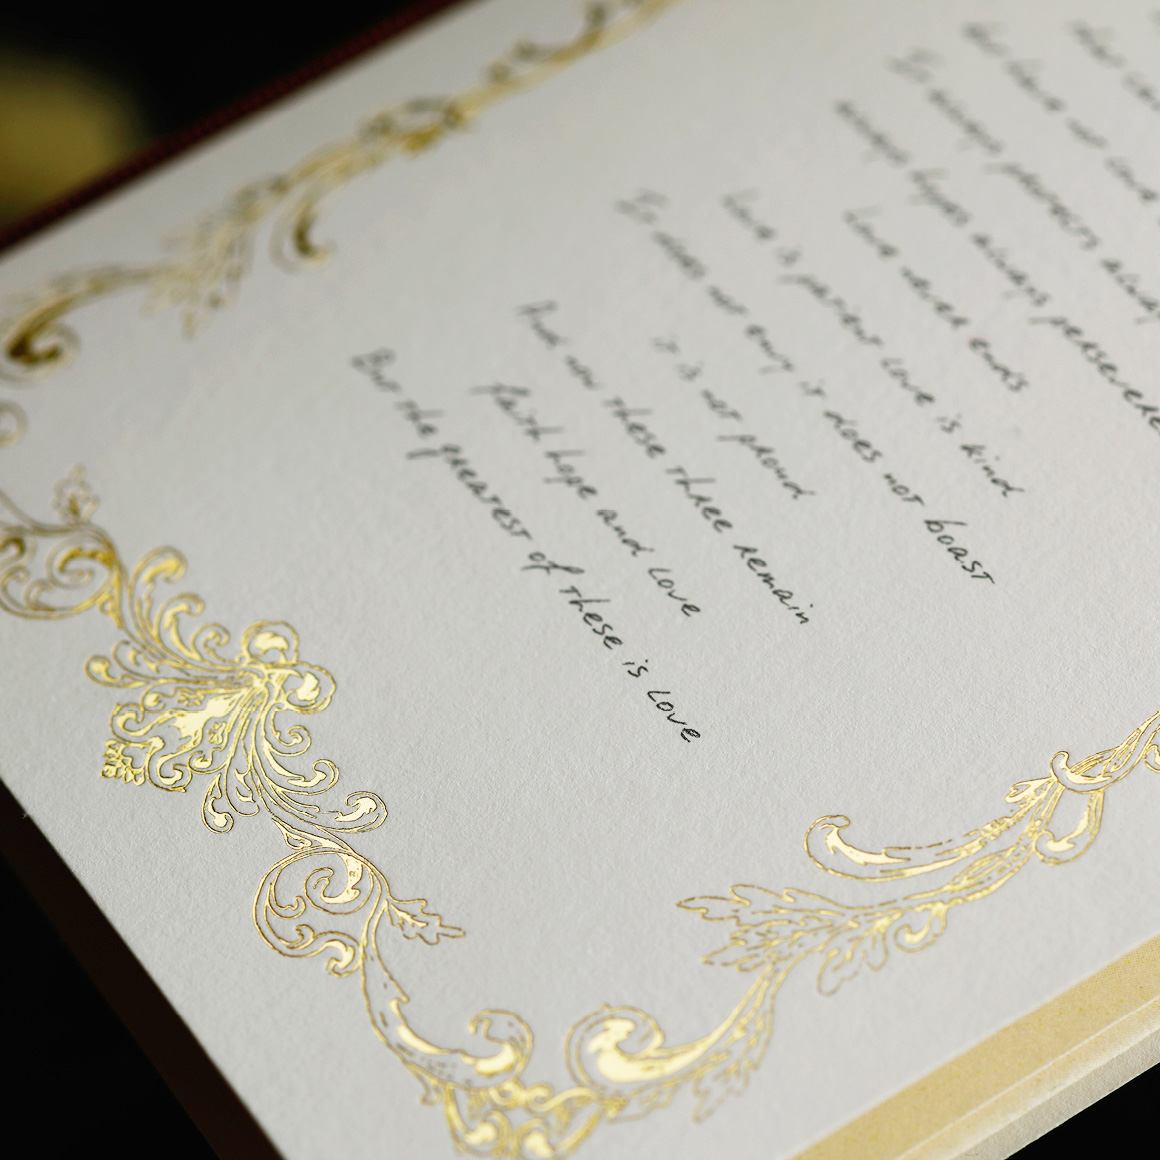 that can
but have not love
It always protects always
always hopes always persevere
Love never ends
Love is patient love is kind
It does not envy it does not boast
it is not proud
And now these three remain
faith hope and love
But the greatest of these is love